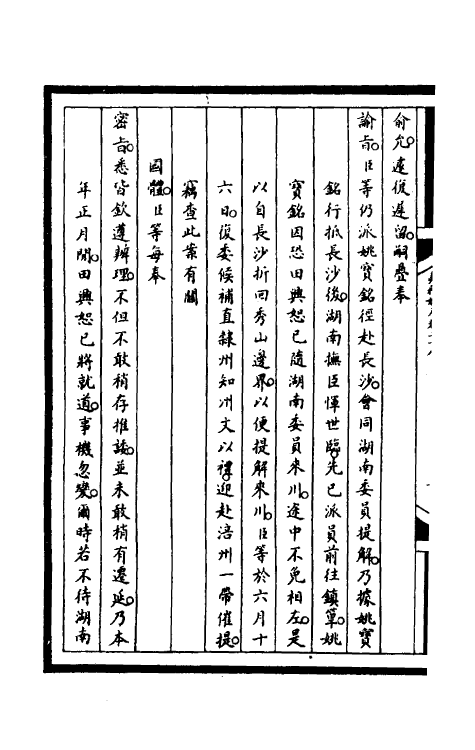 俞允遽復遲留嗣疊奉
諭旨臣等仍派姚寶銘徑赴長沙會同湖南委員提解乃據姚寶
銘行抵長沙後湖南撫臣惲世臨先已派員前往鎮篁姚
寶銘因恐田興恕已隨湖南委員來川途中不免相左是
以自長沙折回秀山邊界以便提解來川臣等於六月十
六日復委候補直隸州知州文以禮迎赴涪州一帶催提
竊查此案有關
國體臣等每奉
密旨悉皆欽遵辦理不但不敢稍存推諉並未敢稍有遷延乃本
年正月閒田興恕已將就道事機忽變爾時若不待湖南